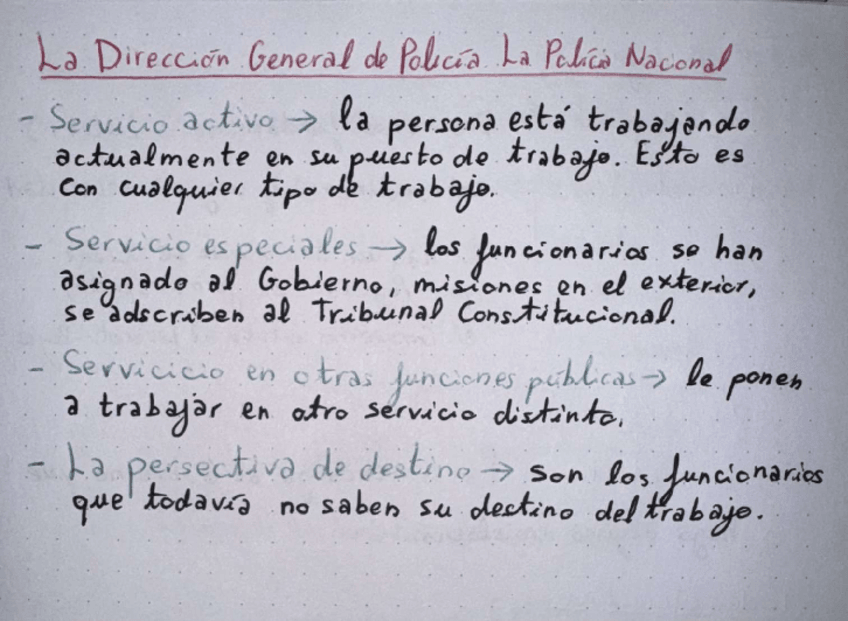 La Dirección General de Policía La Policía Nacional
- Servicio activo → la persona está trabajando
actualmente en su puesto de trabajo. Esto es
con cualquier tipo de trabajo.
- Servicio especiales → los funcionarios se han
asignado al Gobierno, misiones en el exterior,
se adscriben al Tribunal Constitucional.
- Servicicio en otras funciones públicas → le ponen
a trabajar en otro servicio distinto.
- La persectiva de destino → son los funcionarios
que todavía no saben su destino del trabajo.